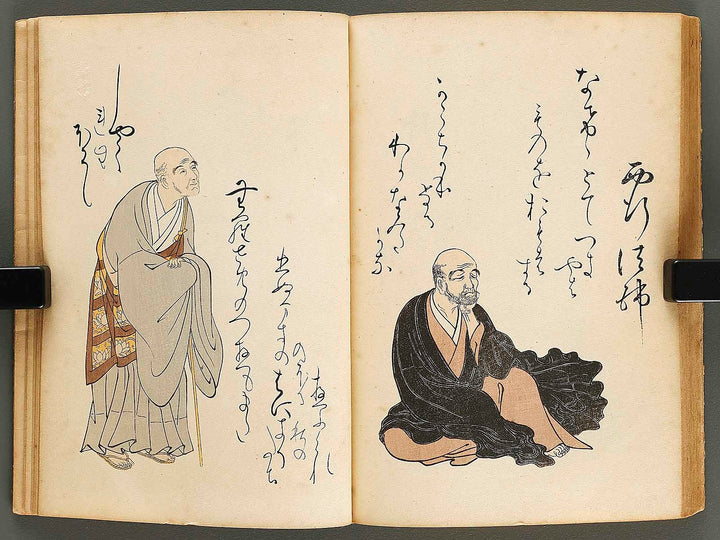 西行法師
なけゝとてつき
やは
ものをおもはす
る
かこちかほ
なる
わかなみた
かな
しやく
れん
ほうし
むらさめのつゆもまた
ひぬまきのはにきりたち
のほる秋の
ゆふくれ